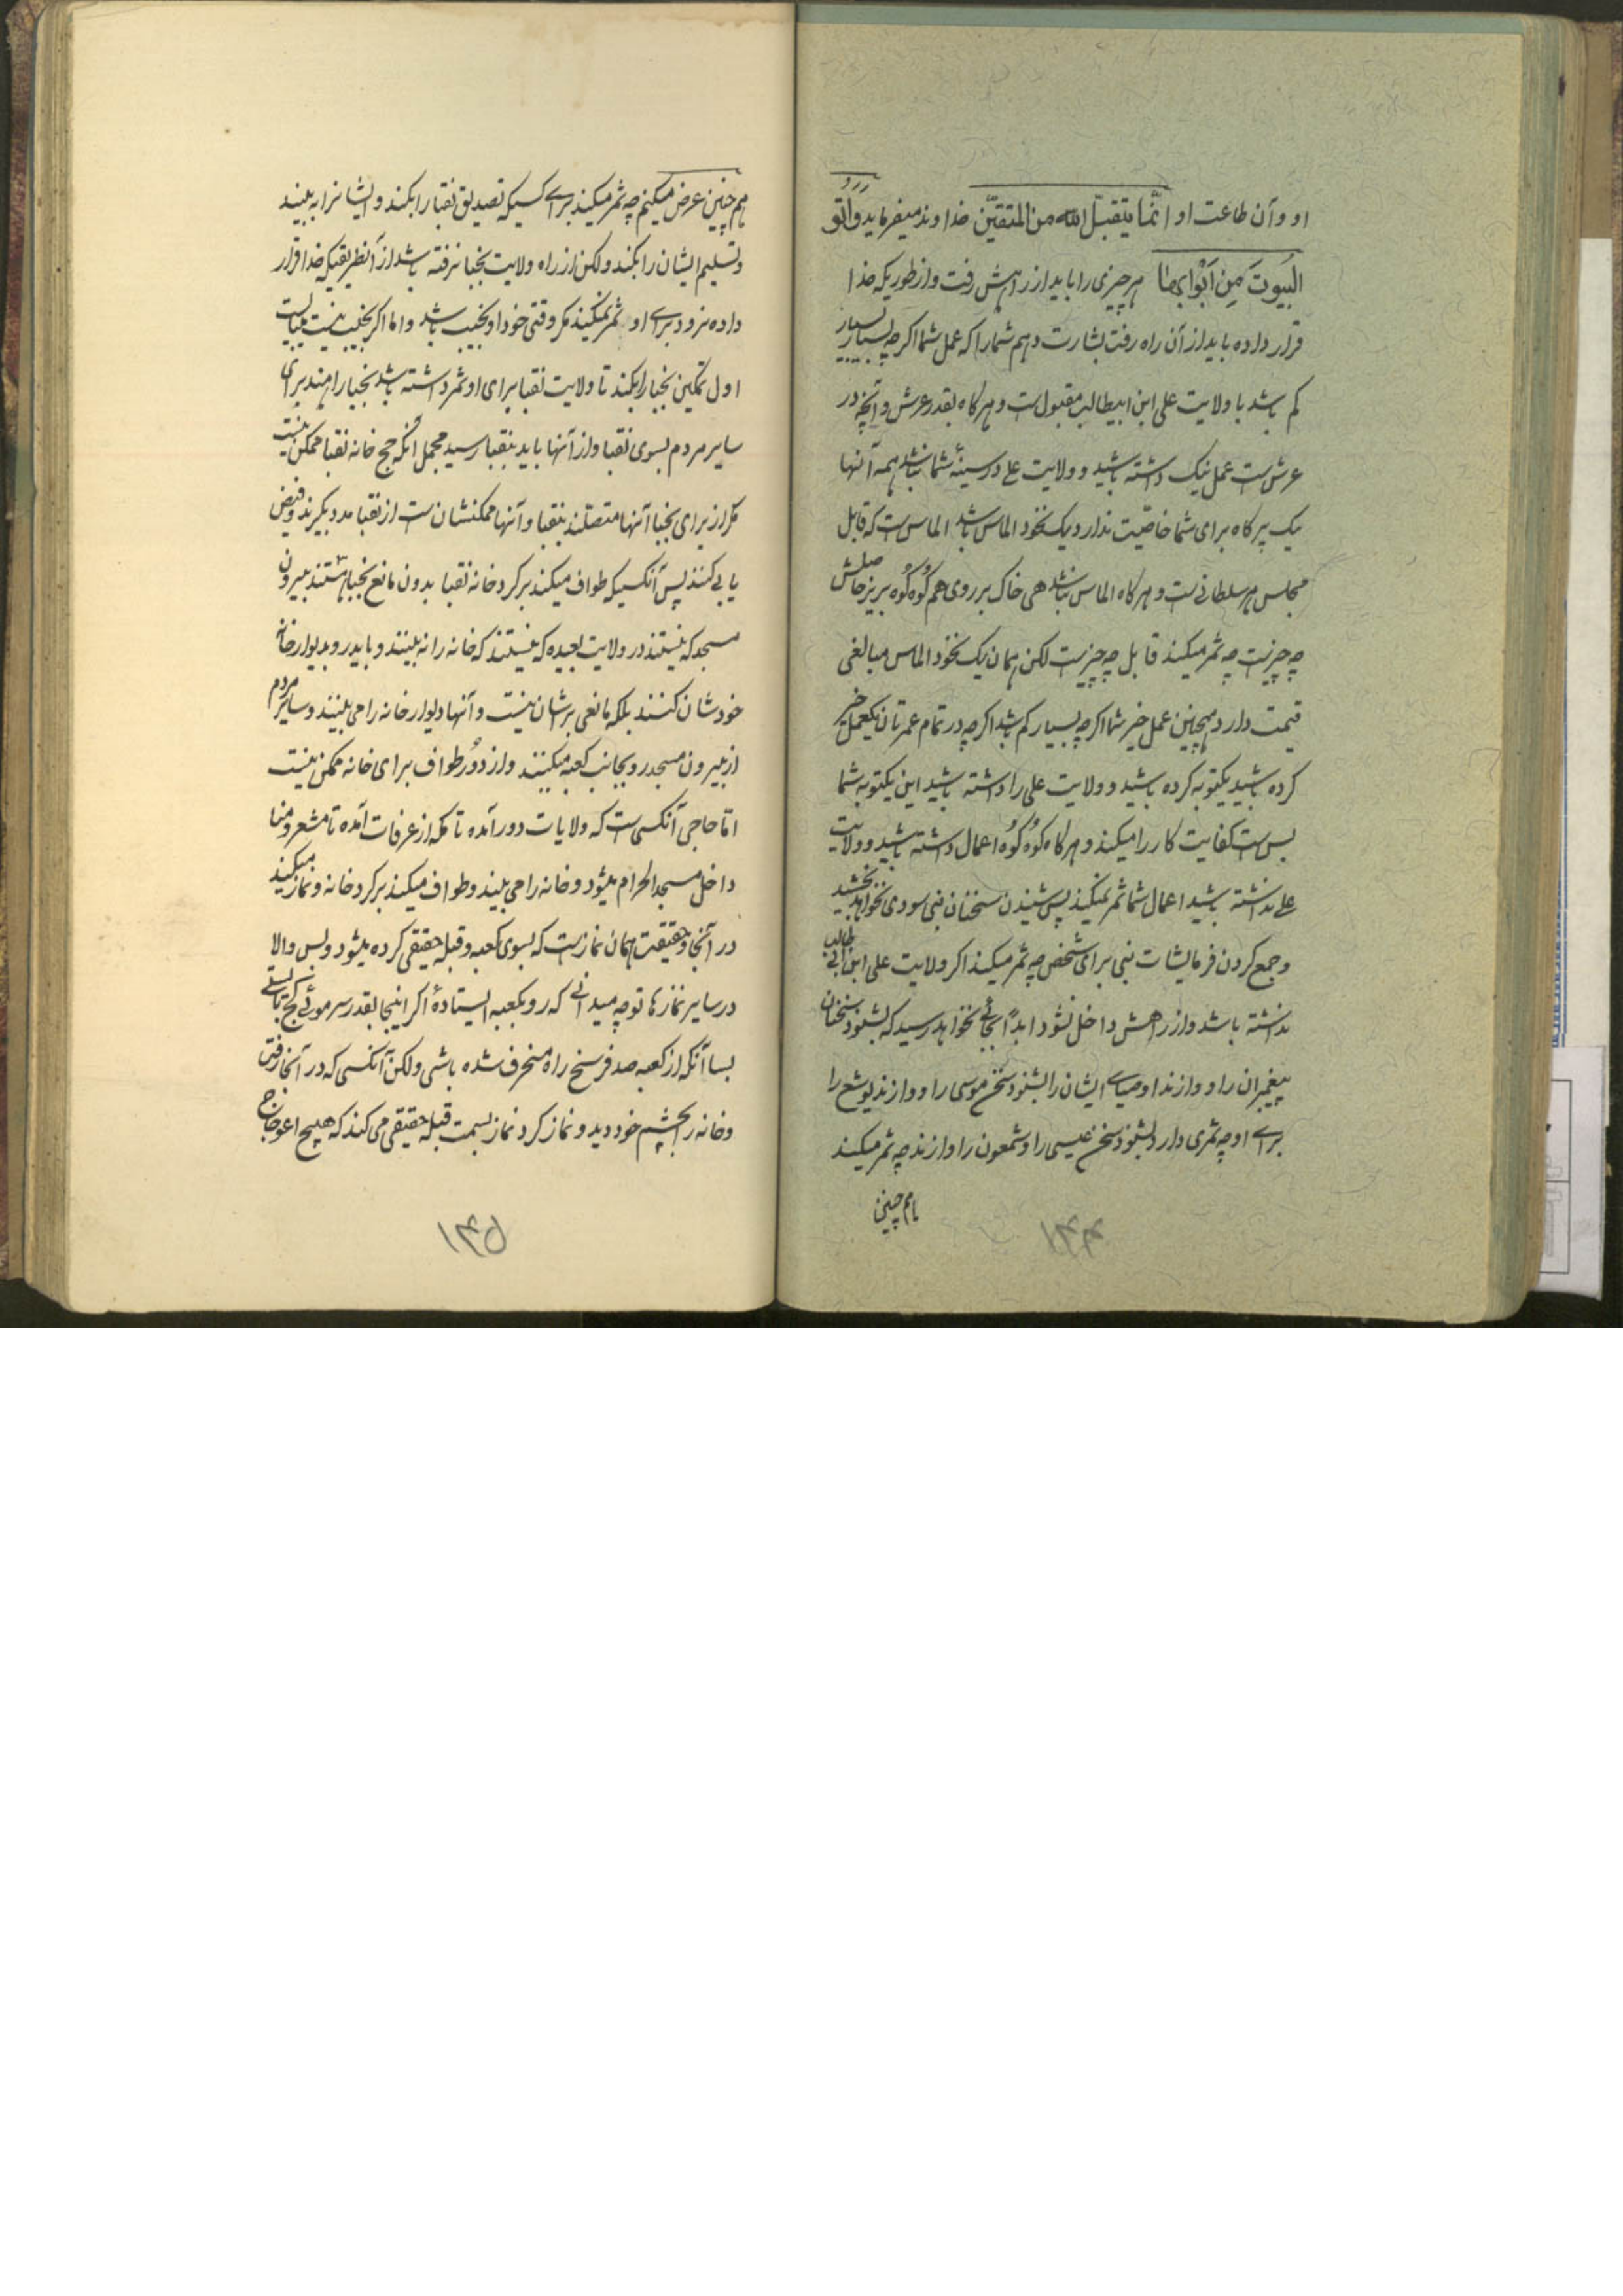 او و آن طاعت او انّما یتقبّل الله من المتقیّن خداوند میفرماید وأتو
البُیوتَ مِن اَبْوابها هرچیزی را باید از راهش رفت و از طوریکه خدا
قرار داده باید از آن راه رفت بشارت دهم شما را که عمل شما اگرچه بسیار بسیار
کم باشد با ولایت علی ابن ابیطالب مقبول است و هرگاه بقدر عرش و آنچه در
عرش است عمل نیک داشته باشید و ولایت علی در سینهٔ شما نباشد همه آنها
یک پر کاه برای شما خاصّیت ندارد یک نخود الماس باشد الماس است که قابل
مجلس هر سلطانی است و هرگاه الماس نباشد هی خاک بر روی هم کُوه کُوه بریز حاصلش
چه چیز است چه ثمر میکند قابل چه چیز است لکن همان یک نخود الماس مبالغی
قیمت دارد همچنین عمل خیر شما اگرچه بسیار کم باشد اگرچه در تمام عمرتان یکعمل خیر
کرده باشید یکتوبه کرده باشید و ولایت علی را داشته باشید این یکتوبه شما
بس است کفایت کار را میکند و هرگاه کُوه کُوه اعمال داشته باشید و ولایت
علی نداشته باشید اعمال شما ثمر نمیکند پس شنیدن سخنان نبی سودی نخواهد بخشید
و جمع کردن فرمایشات نبی برای شخص چه ثمر میکند اگر ولایت علی ابن ابی طالب
نداشته باشد و از راهش داخل نشود ابداً بجائی نخواهد رسید که بشنود سخنان
پیغمبران را و وازند اوصیای ایشان را بشنود سخن موسی را و وازند یوشع را
برای او چه ثمری دارد بشنود سخن عیسی را و شمعون را وازند چه ثمر میکند
هم چنین
۱۴۴
هم چنین عرض میکنم چه ثمر میکند برای کسیکه تصدیق نقبا را بکند و ایشانرا به بیند
و تسلیم ایشان را بکند ولکن از راه ولایت نجبا نرفته باشد از آنطریقیکه خدا قرار
داده نرود برای او ثمر نمیکند مگر وقتی خود او نجیب باشد و اما اگر نجیب نیست میبایست
اول تمکین نجبا را بکند تا ولایت نقبا برای او ثمر داشته باشد نجبا راهند برای
سایر مردم بسوی نقبا و از آنها باید بنقبا رسید مجمل آنکه حج خانه نقبا ممکن نیست
مگر از برای نجبا آنها متصلند بنقبا و آنها ممکنشان است از نقبا مدد بگیرند و فیض
یابی کنند پس آنکسیکه طواف میکند برگرد خانه نقبا بدون مانع نجبا هستند بیرون
مسجد که نیستند در ولایت بعیده که نیستند که خانه را نه بینند و باید رو بدیوار خانه
خودشان کنند بلکه مانعی برشان نیست و آنها دیوار خانه را می بینند و سایر مردم
از بیرون مسجد رو بجانب کعبه میکنند و از دُور طواف برای خانه ممکن نیست
امّا حاجی آنکسی است که ولایات دور آمده تا مکه از عرفات آمده تا مشعر و منا
داخل مسجد الحرام میشود و خانه را می بیند و طواف میکند برگرد خانه و نماز میکند
در آنجا و حقیقت همان نماز است که بسوی کعبه و قبله حقیقی کرده میشود و بس والا
در سایر نمازها تو چه میدانی که رو بکعبه ایستادهٔ اگر اینجا بقدر سر موئی کج بایستی
بسا آنکه از کعبه صد فرسخ راه منحرف شده باشی ولکن آنکسی که در آنجا رفت
و خانه را بچشم خود دید و نماز کرد نماز بسمت قبله حقیقی می کند که هیچ اعوجاج
۱۴۵